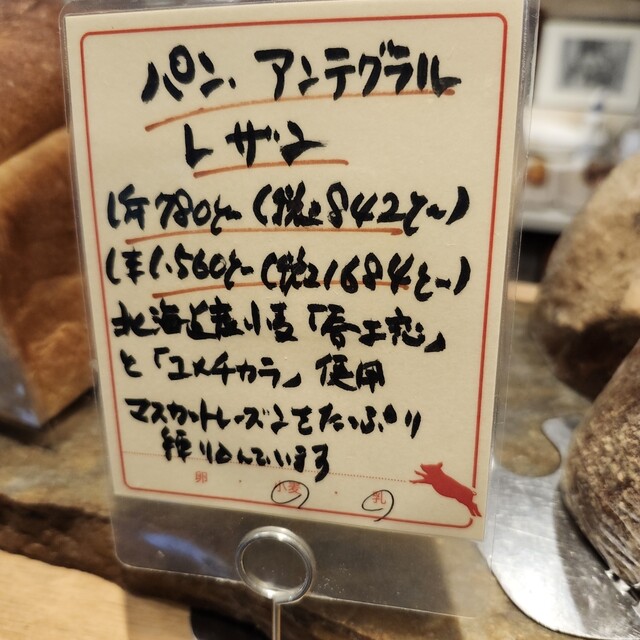 パン・アンテグラル
レザン
1斤780円(税込842円)
1本1,560円(税込1684円)
北海道産小麦「香土恋」
と「ユメチカラ」使用
マスカットレーズンをたっぷり
練り込んでいます
卵・小麦・乳